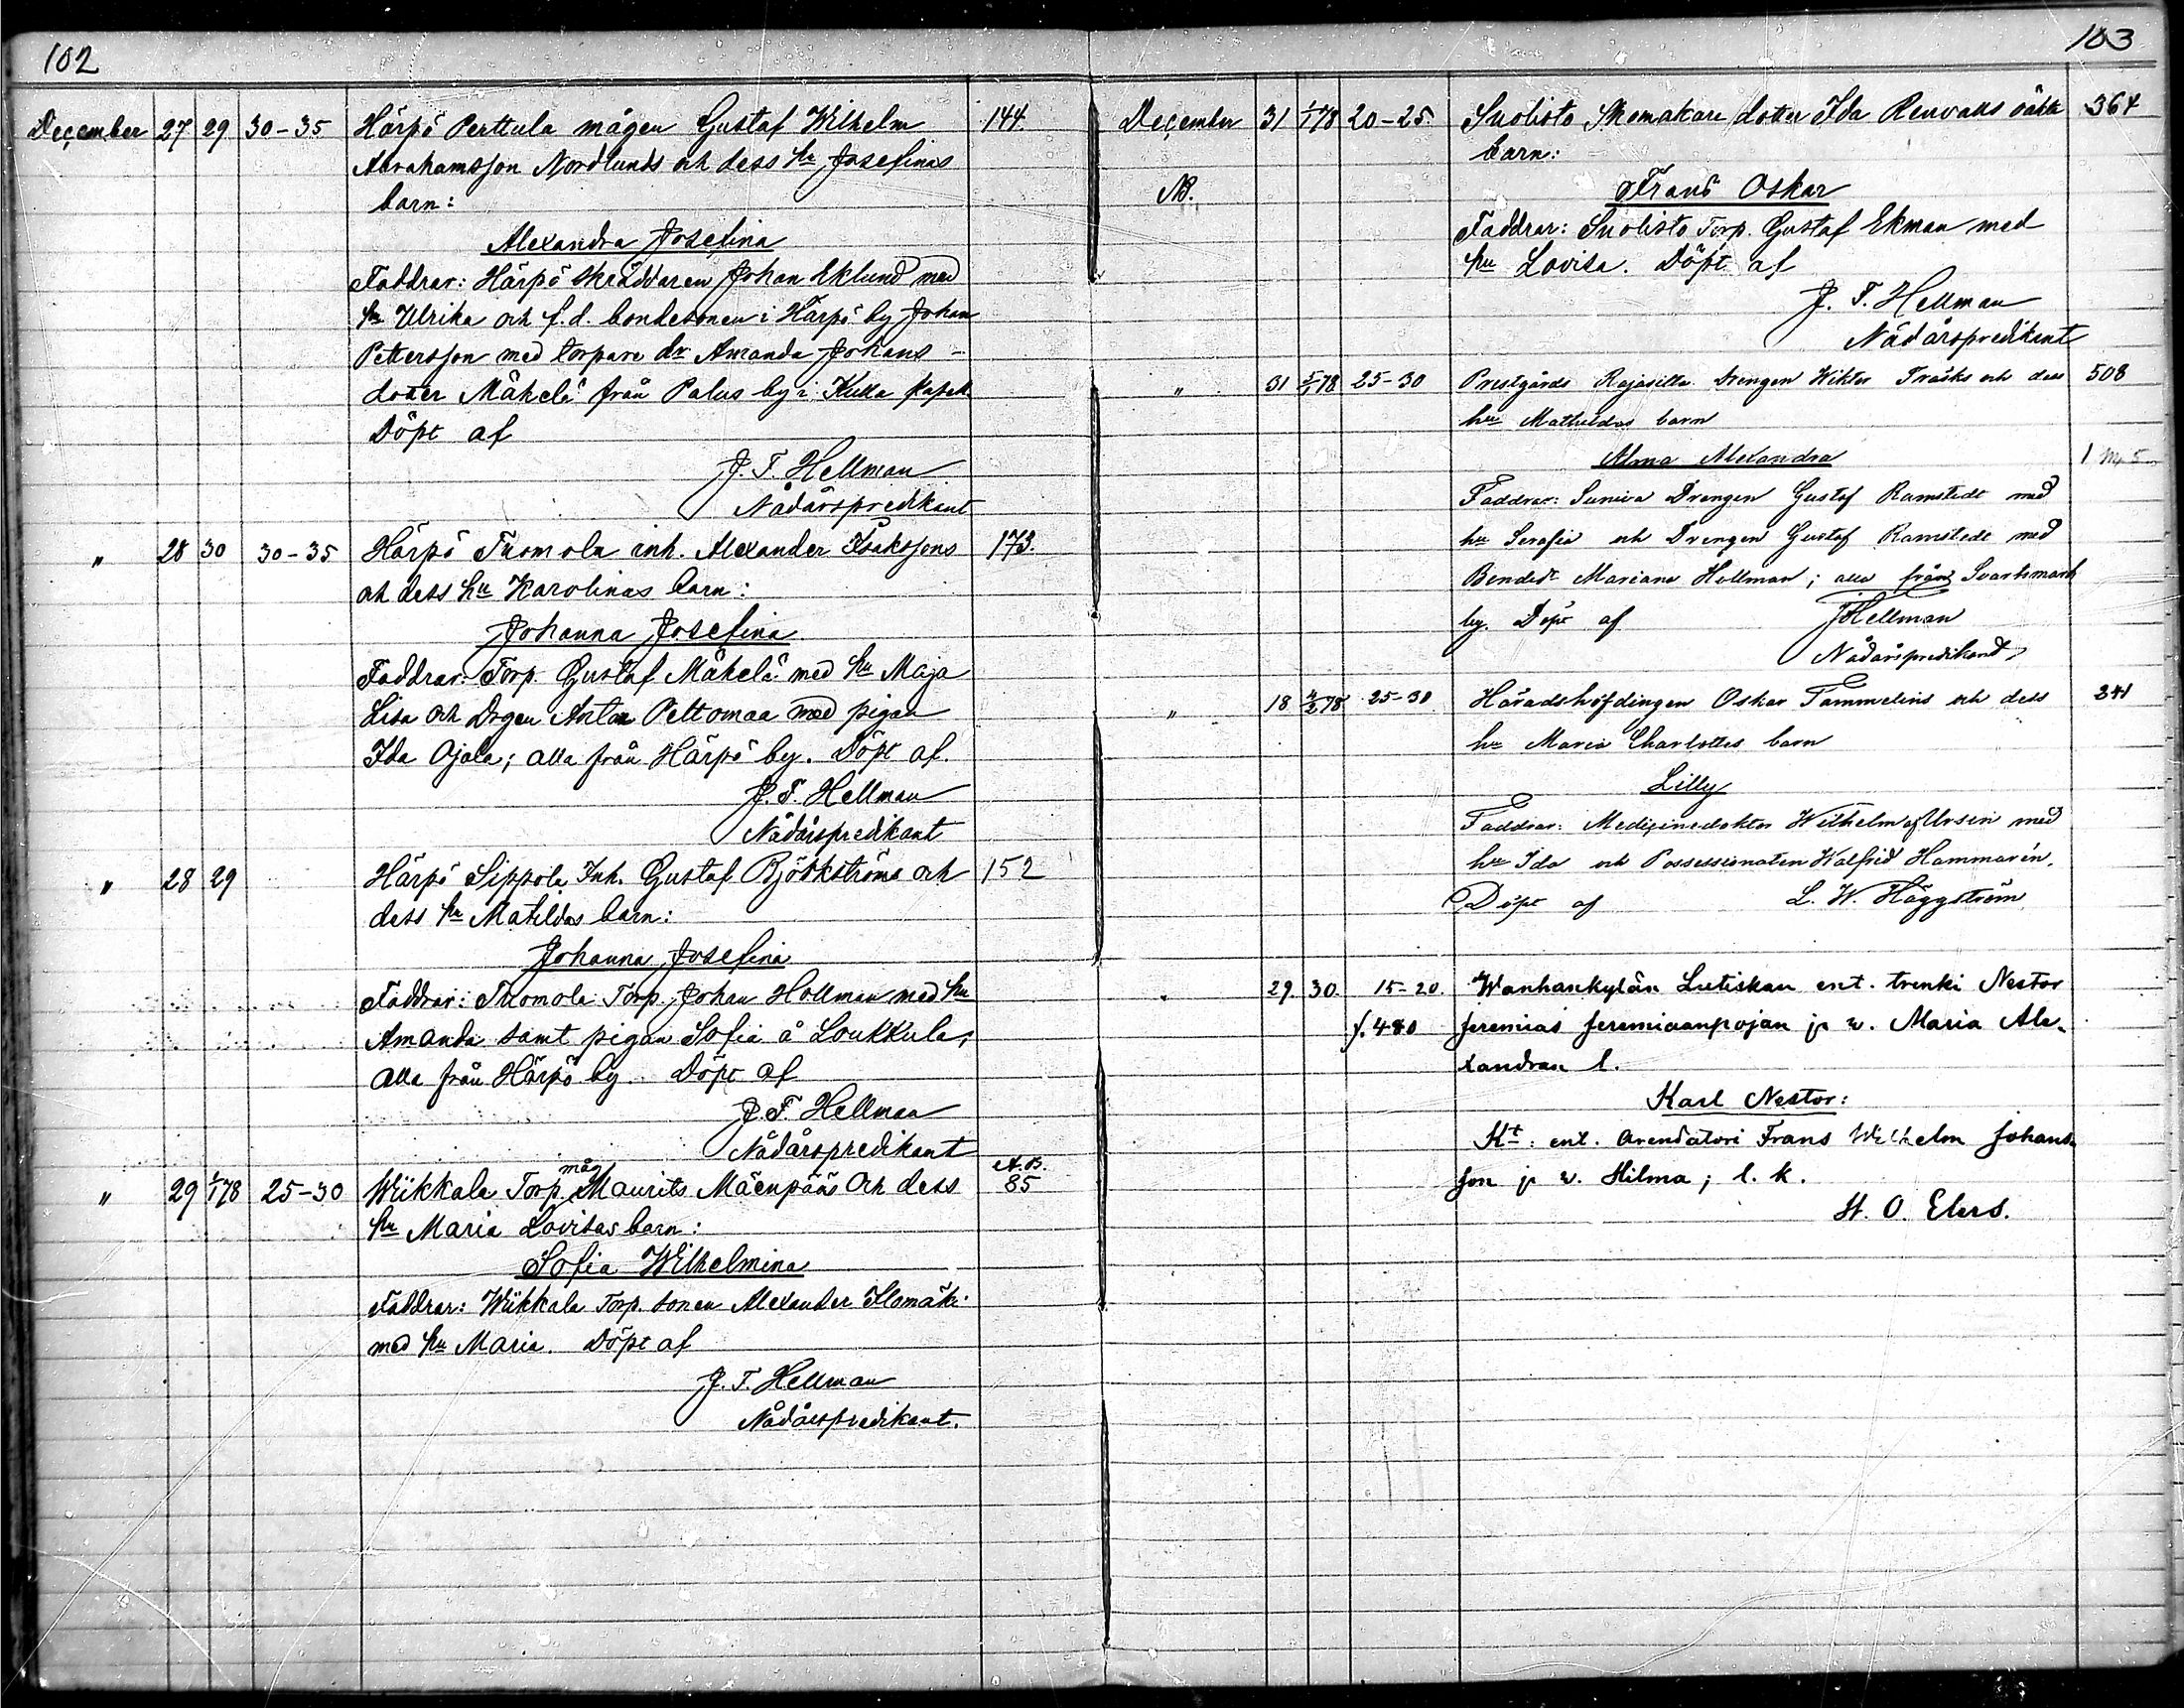 102
December 27 29 30-35 Härpö Perttula mågen Gustaf Wilhelm 144.
Abrahamsson Nordlunds och dess hu Josefinas
barn:
Alexandra Josefina
Faddrar: Härpö skräddaren Johan Eklund med
hu Ulrika och f.d. bondesonen i Härpö by Johan
Pettersson med torpare dr Amanda Johans-
dotter Mäkelä från Palus by i Kulla kapell.
Döpt af
J. F. Hellman
Nådårspredikant
" 28 30 30-35 Härpö Tuomola inh. Alexander Isakssons 173.
och dess hu Karolinas barn:
Johanna Josefina
Faddrar: Torp. Gustaf Mäkelä med hu Maja
Lisa och Drgen Anton Peltomaa med pigan
Ida Ojala; alla från Härpö by. Döpt af.
J. F. Hellman
Nådårspredikant
" 28 29 Härpö Sippola Inh. Gustaf Björkströms och 152
dess hu Matildas barn:
Johanna Josefina
Faddrar: Tuomola Torp. Johan Hollman med hu
Amanda samt pigan Sofia å Loukkula,
alla från Härpö by. Döpt af
J. F. Hellman
Nådårspredikant
" 29 1/1 78 25-30 Wiikkala Torp. måg Maurits Mäenpääs och dess 85
hu Maria Lovisas barn:
Sofia Wilhelmina
Faddrar: Wiikkala Torp. sonen Alexander Ilomäki
med hu Maria. Döpt af
J. F. Hellman
Nådårspredikant.
103
December 31 1/1 78 20-25. Suolisto Skomakare dotter Ida Renvalls oäkta 364
barn:
NB. Frans Oskar
Faddrar: Suolisto Torp. Gustaf Ekman med
hu Lovisa. Döpt af
J. F. Hellman
Nådårspredikant
" 31 5/1 78 25-30 Prestgårds Rajasilta Drengen Wiktor Träsks och dess 508
hu Mathildas barn
Alma Alexandra
Faddrar: Drengen Gustaf Ramstedt med
hu Serafia och Drengen Gustaf Ramstedt med
Bondedr Mariana Hollman; alla från Svartsmark
by. Döpt af Hellman
Nådårspredikant
" 18 78 25-30 Häradshöfdingen Oskar Tammelins och dess 241
hu Maria Charlottas barn
Lilly
Faddrar: Medicinedoktor Wilhelm af Ursin med
hu Ida och Possessionaten Walfrid Hammarén.
Döpt af L. W. Häggström
" 29. 30. 15-20. Wanhankylän Lutiskan ent. trenki Nestor
s. 480 Jeremias Jeremiaanpojan ja w. Maria Ale-
xandran l.
Karl Nestor:
Kt: ent. arendatori Frans Wilhelm Johans-
son ja w. Hilma; l. k.
H. O. Elers.